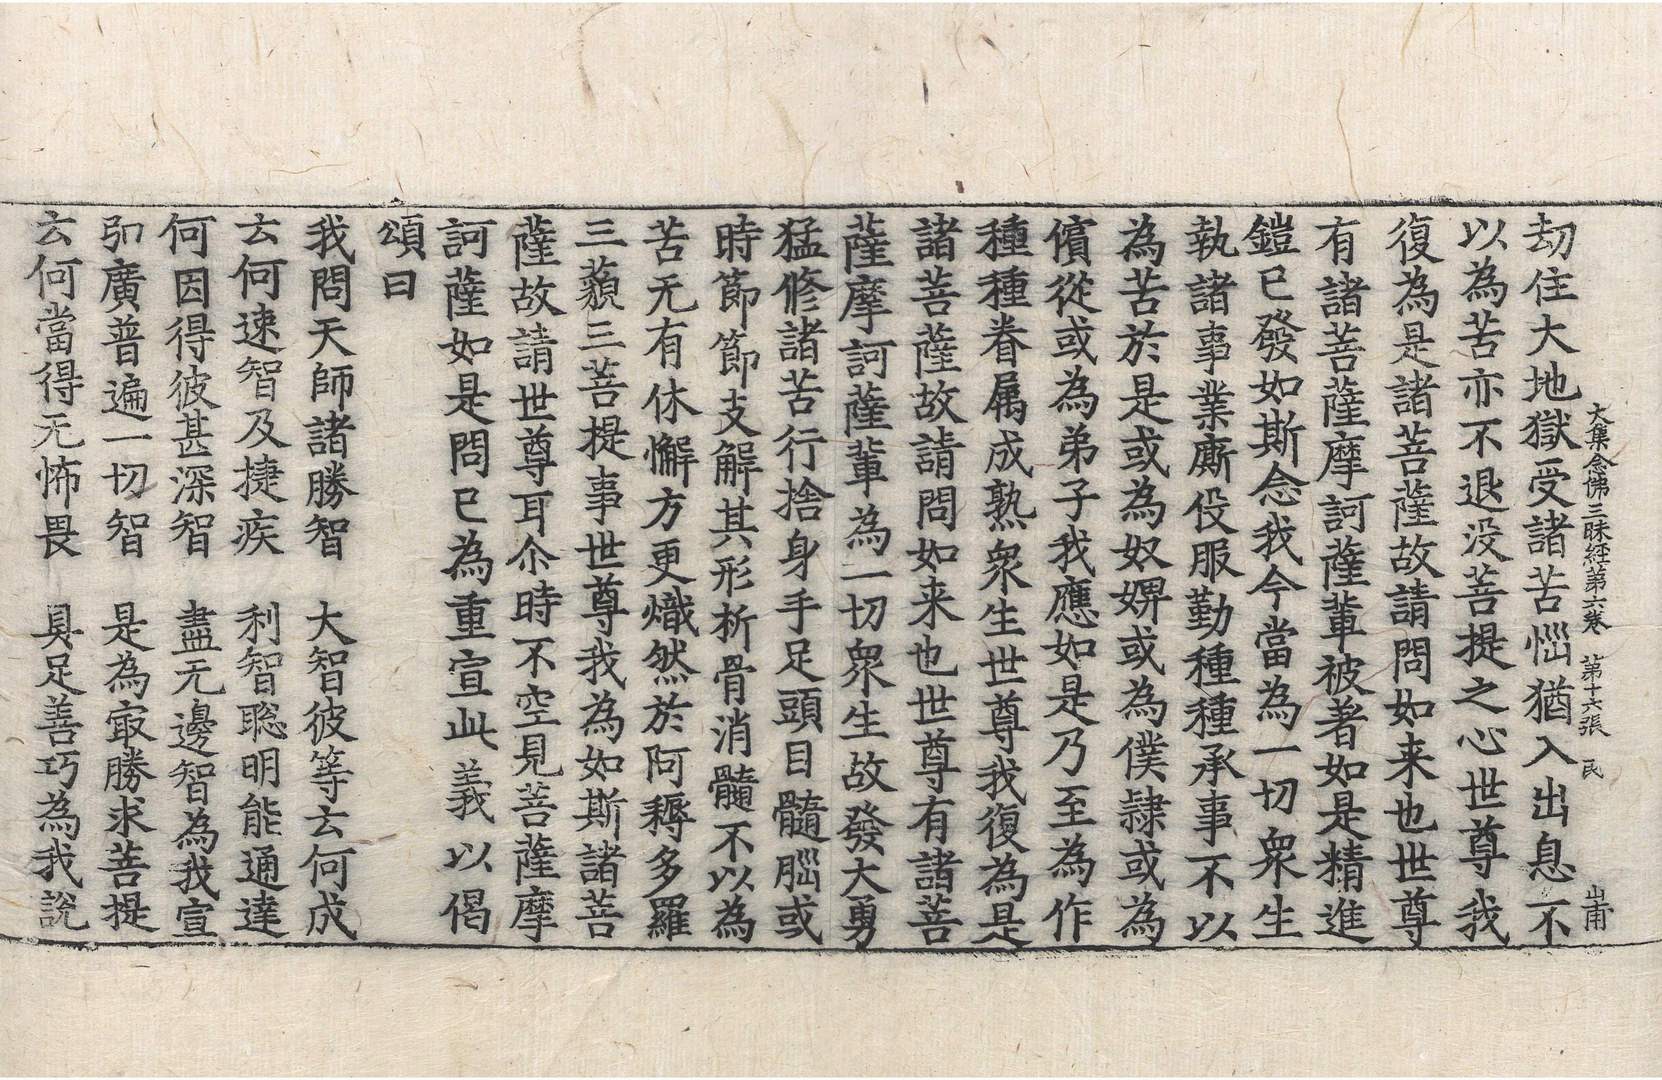 大集念佛三昧經第六卷　第十六張　民　出甫
劫住大地獄受諸苦惱猶入出息不
以為苦亦不退没菩提之心世尊我
復為是諸菩薩故請問如来也世尊
有諸菩薩摩訶薩輩被著如是精進
鎧已發如斯念我今當為一切衆生
執諸事業廝役服勤種種承事不以
為苦於是或為奴婢或為僕隷或為
儐從或為弟子我應如是乃至為作
種種眷属成熟衆生世尊我復為是
諸菩薩故請問如来也世尊有諸菩
薩摩訶薩輩為一切衆生故發大勇
猛修諸苦行捨身手足頭目髓腦或
時節節支解其形析骨消髓不以為
苦无有休懈方更熾然於阿耨多羅
三藐三菩提事世尊我為如斯諸菩
薩故請世尊耳尒時不空見菩薩摩
訶薩如是問已為重宣此義以偈
頌曰
我問天師諸勝智　大智彼等云何成
云何速智及捷疾　利智聡明能通達
何因得彼甚深智　盡无邊智為我宣
弘廣普遍一切智　是為㝡勝求菩提
云何當得无怖畏　具足善巧為我說